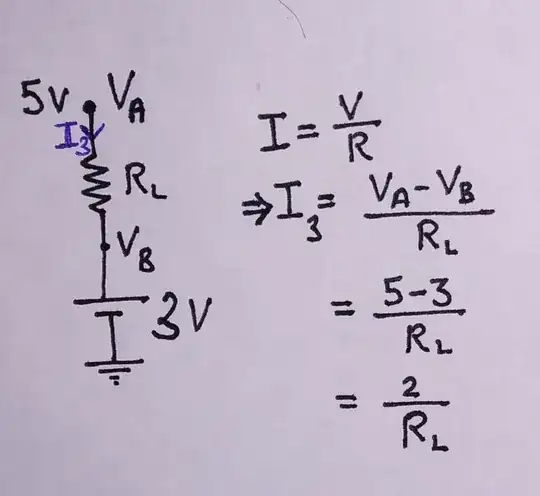 5V V_A
I_3
R_L
V_B
3V
I = V/R
⇒ I_3 = (V_A - V_B)/R_L
= (5-3)/R_L
= 2/R_L